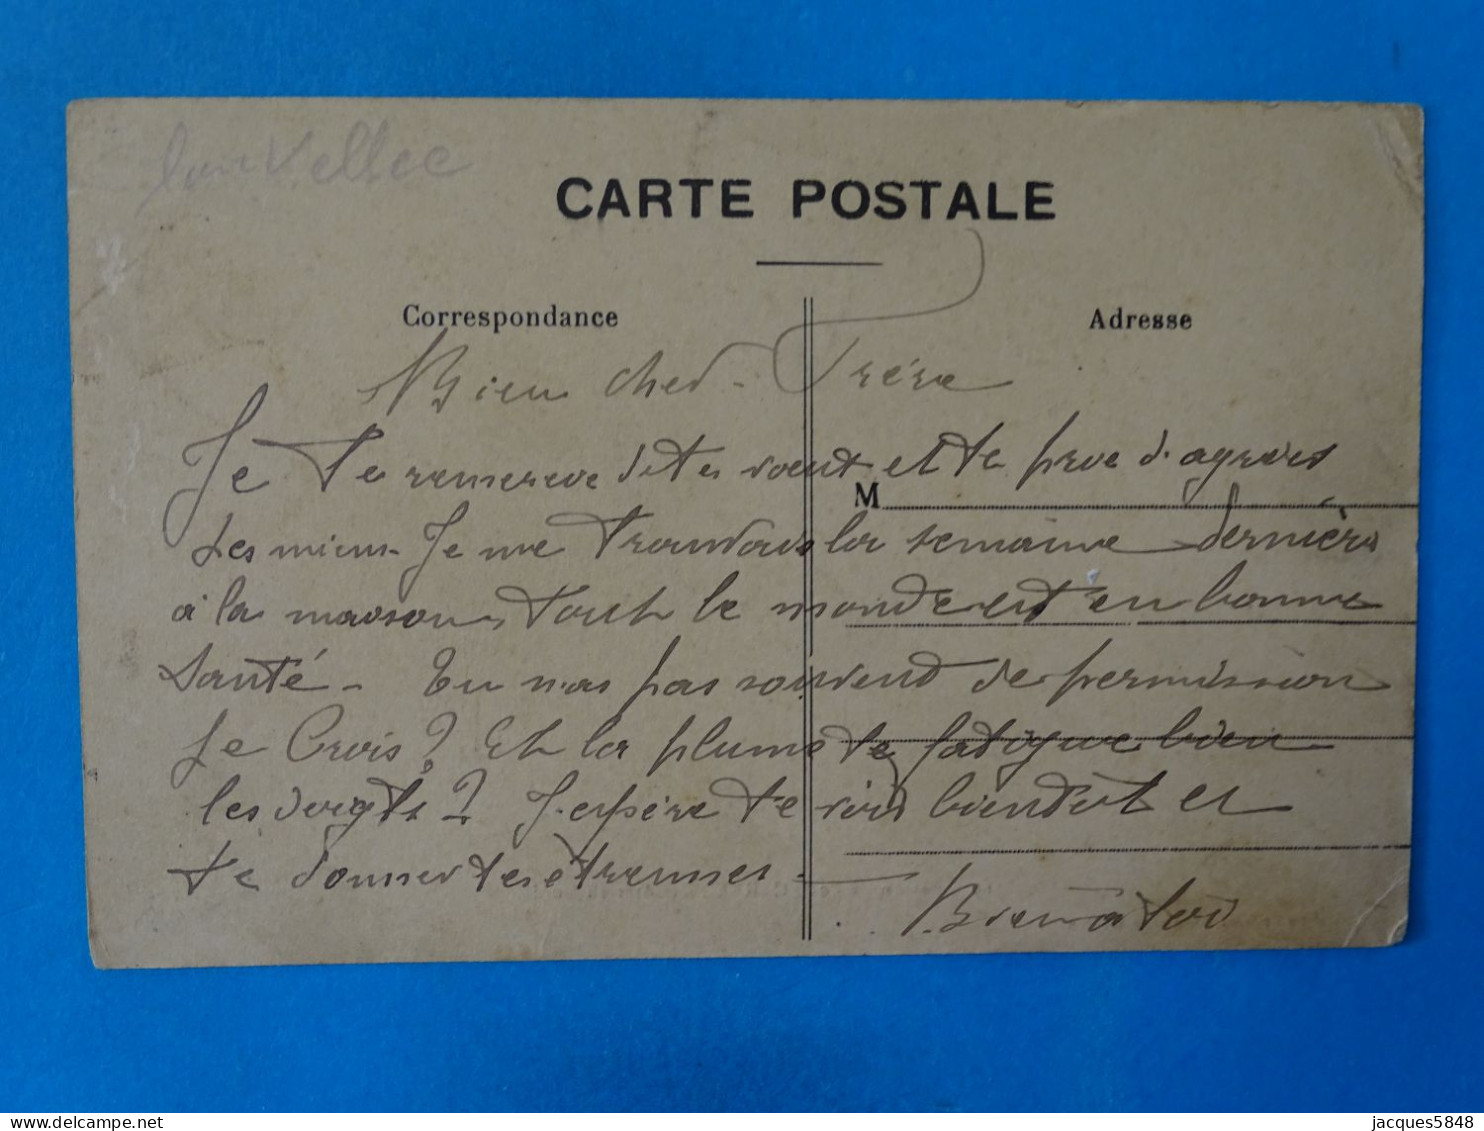 lanvellec
CARTE POSTALE
Correspondance
Adresse
Bien cher Frère
Je te remereve de tes voeut et te prie d'agréés
M
les miens. Je me trouvais la semaine dernière
à la maison, tout le monde est en bonne
Santé - Tu n'as pas souvend de permission
je Crois? Et la plume te fatigue bien
les doigts? J'espère te voir bientôt et
te donner tes étrennes.
Bien à toi
jacques5848